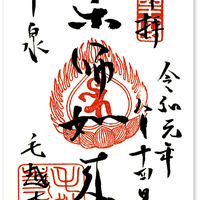 奉拝
令和元年
八月十四日
薬師如来
平泉
毛越寺